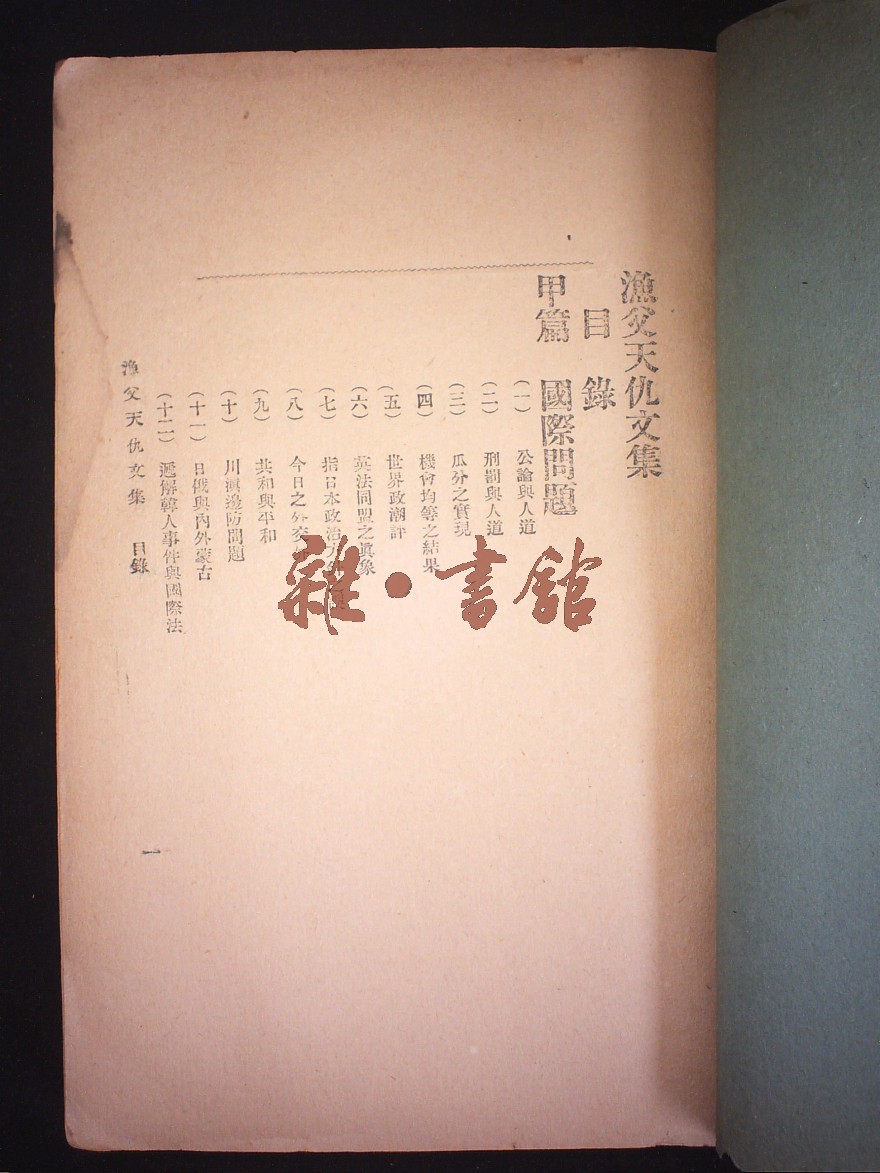 漁父天仇文集
目錄
甲篇 國際問題
(一) 公論與人道
(二) 刑罰與人道
(三) 瓜分之實現
(四) 機會均等之結果
(五) 世界政潮評
(六) 英法同盟之眞象
(七) 指日本政治方
(八) 今日之外交
(九) 共和與平和
(十) 川滇邊防問題
(十一) 日俄與內外蒙古
(十二) 遞解韓人事件與國際法
漁父天仇文集 目錄
一
雜·書館